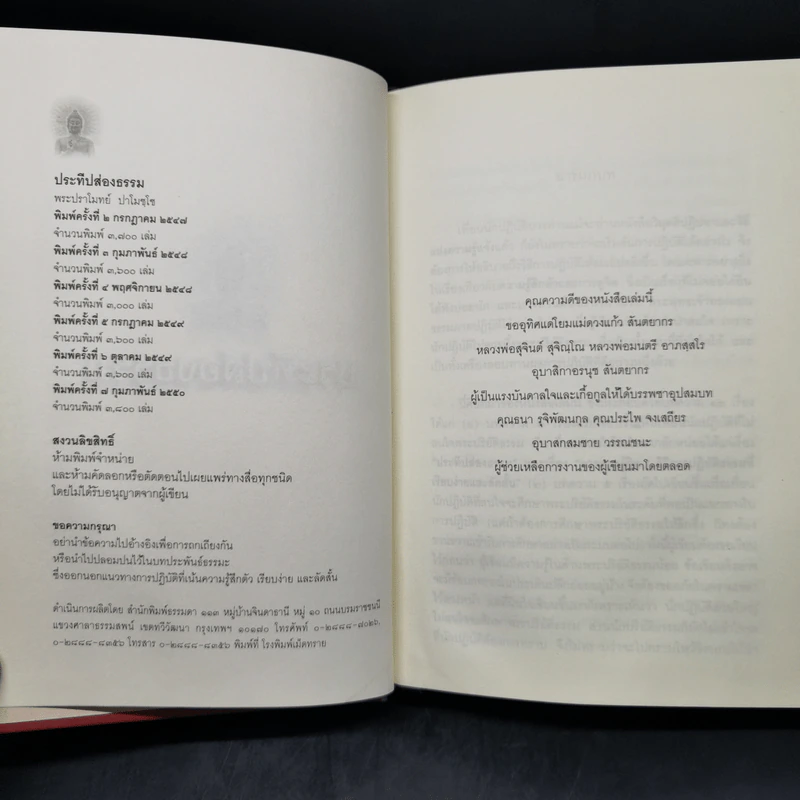 ประทีปส่องธรรม
พระปราโมทย์ ปาโมชฺโช
พิมพ์ครั้งที่ ๒ กรกฎาคม ๒๕๔๗
จำนวนพิมพ์ ๓,๗๐๐ เล่ม
พิมพ์ครั้งที่ ๓ กุมภาพันธ์ ๒๕๔๘
จำนวนพิมพ์ ๓,๖๐๐ เล่ม
พิมพ์ครั้งที่ ๔ พฤศจิกายน ๒๕๔๘
จำนวนพิมพ์ ๓,๐๐๐ เล่ม
พิมพ์ครั้งที่ ๕ กรกฎาคม ๒๕๔๙
จำนวนพิมพ์ ๓,๖๐๐ เล่ม
พิมพ์ครั้งที่ ๖ ตุลาคม ๒๕๔๙
จำนวนพิมพ์ ๓,๖๐๐ เล่ม
พิมพ์ครั้งที่ ๗ กุมภาพันธ์ ๒๕๕๐
จำนวนพิมพ์ ๓,๘๐๐ เล่ม
สงวนลิขสิทธิ์
ห้ามพิมพ์จำหน่าย
และห้ามคัดลอกหรือตัดตอนไปเผยแพร่ทางสื่อทุกชนิด
โดยไม่ได้รับอนุญาตจากผู้เขียน
ขอความกรุณา
อย่านำข้อความไปอ้างอิงเพื่อการถกเถียงกัน
หรือนำไปปลอมปนไว้ในบทประพันธ์ธรรมะ
ซึ่งออกนอกแนวทางการปฏิบัติที่เน้นความรู้สึกตัว เรียบง่าย และลัดสั้น
ดำเนินการผลิตโดย สำนักพิมพ์ธรรมดา ๑๑๓ หมู่บ้านจินดาธานี หมู่ ๑๐ ถนนบรมราชชนนี
แขวงศาลาธรรมสพน์ เขตทวีวัฒนา กรุงเทพฯ ๑๐๑๗๐ โทรศัพท์ ๐-๒๘๘๘-๗๐๒๖,
๐-๒๘๘๘-๘๓๕๖ โทรสาร ๐-๒๘๘๘-๘๓๕๖ พิมพ์ที่ โรงพิมพ์เม็ดทราย
คุณความดีของหนังสือเล่มนี้
ขออุทิศแด่โยมแม่ดวงแก้ว สันตยากร
หลวงพ่อสุจินต์ สุจิณฺโณ หลวงพ่อมนตรี อาภสฺสโร
อุบาสิกาอรนุช สันตยากร
ผู้เป็นแรงบันดาลใจและเกื้อกูลให้ได้บรรพชาอุปสมบท
คุณธนา รุจิพัฒนกุล คุณประไพ จงเสถียร
อุบาสกสมชาย วรรณชนะ
ผู้ช่วยเหลือการงานของผู้เขียนมาโดยตลอด